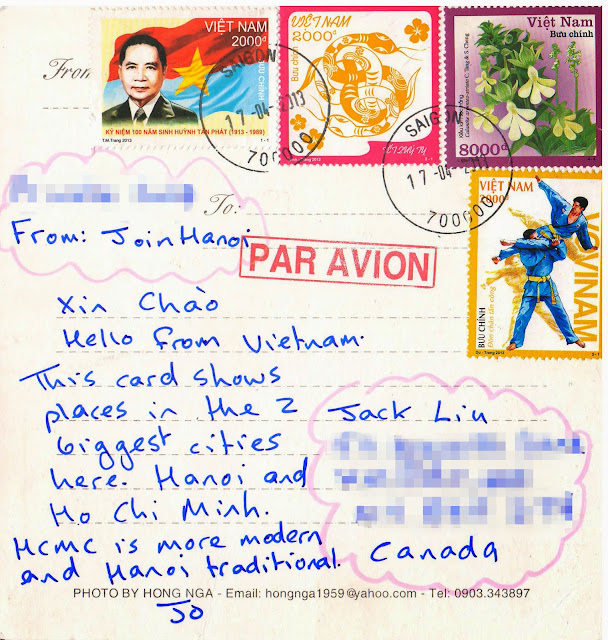 VIỆT NAM
2000đ
BƯU CHÍNH
KỶ NIỆM 100 NĂM SINH HUỲNH TẤN PHÁT (1913 - 1989)
1 - 1
VIỆT NAM
2000đ
Bưu chính
TẾT QUÝ TỴ
Việt Nam
Bưu chính
8000đ
VIỆT NAM
BƯU CHÍNH
VOVINAM
SAIGON
17-04-2013
700000
SAIGON
700000
From
To:
From: JoinHanoi
PAR AVION
Xin Chào
Hello from Vietnam.
This card shows
places in the 2
biggest cities
here. Hanoi and
Ho Chi Minh.
HCMC is more modern
and Hanoi traditional.
Jo
Jack Liu
Canada
PHOTO BY HONG NGA - Email: hongnga1959@yahoo.com - Tel: 0903.343897